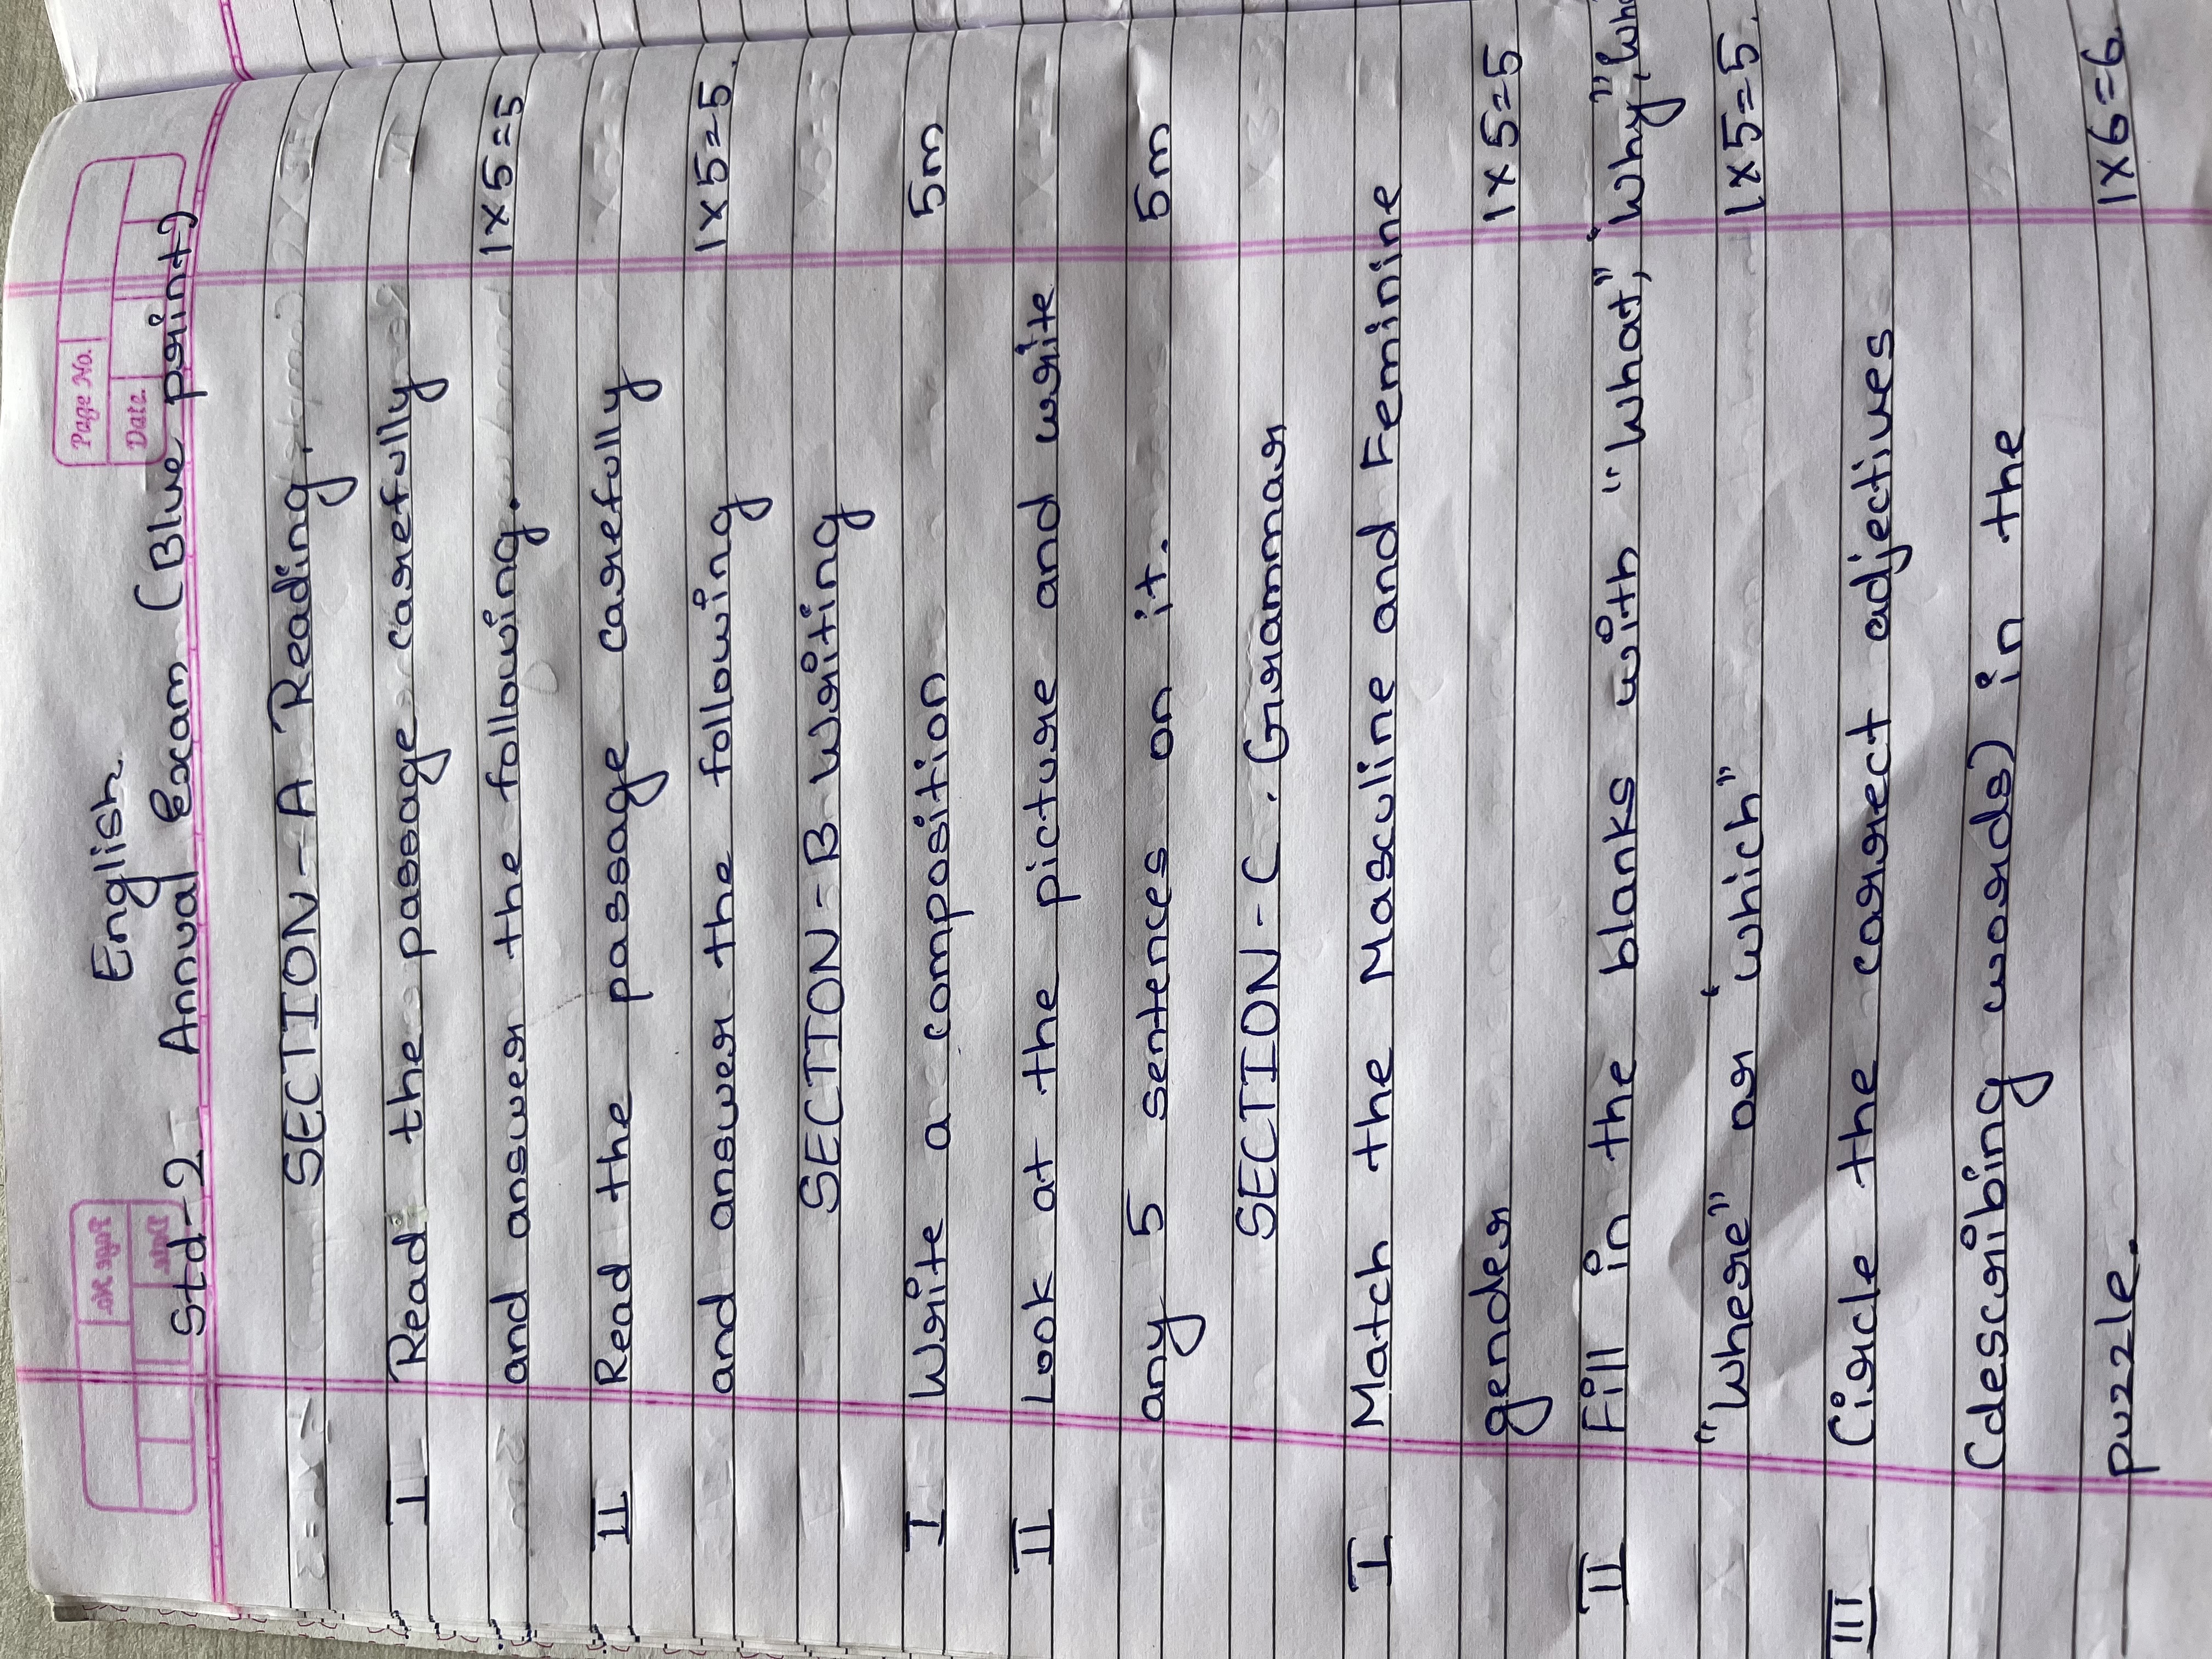 Page No.
Date.
English
Std-2 Annual Exam (Blue print)
SECTION-A Reading.
I Read the passage carefully
and answer the following. 1x5=5
II Read the passage carefully
and answer the following 1x5=5.
SECTION-B Writing
I Write a composition 5m
II Look at the picture and write
any 5 sentences on it. 5m
SECTION-C. Grammar
I Match the Masculine and Feminine
gender 1x5=5
II Fill in the blanks with "What", "Why",
"Where" or "which" 1x5=5.
III Circle the correct adjectives
(describing words) in the
puzzle. 1x6=6.